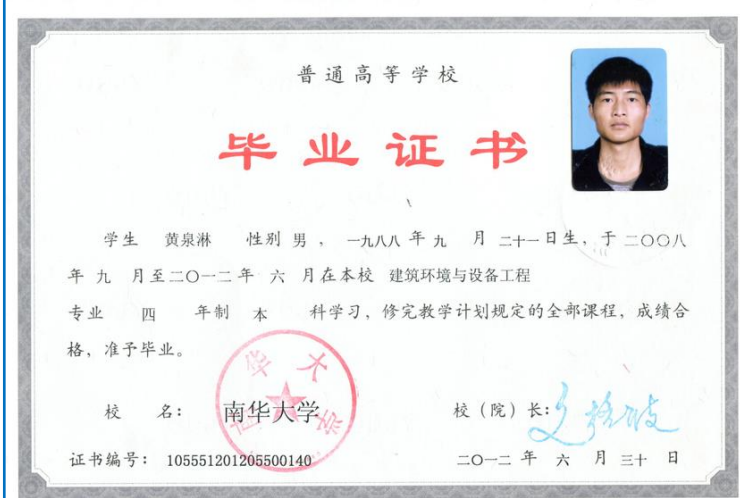 普通高等学校
毕业证书
学生 黄泉淋 性别 男 ， 一九八八 年 九 月 二十一 日生，于 二〇〇八
年 九 月至二〇一二 年 六 月在本校 建筑环境与设备工程
专业 四 年制 本 科学习，修完教学计划规定的全部课程，成绩合
格，准予毕业。
校 名： 南华大学 校（院）长：
证书编号： 105551201205500140 二〇一二 年 六 月 三十 日